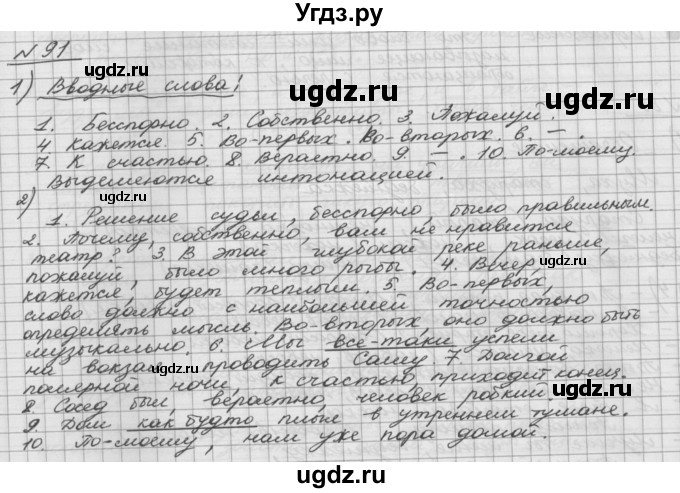 Угдз.ру
N 91
1) Вводные слова!
1. Бесспорно. 2. Собственно. 3. Пожалуй.
4 Кажется. 5. Во-первых. Во-вторых. 6. — .
7. К счастью. 8. Вераетно. 9. — . 10. По-моему.
Выделяются интонацией.
2)
1. Решение судьи, бесспорно, было правильным.
2. Почему, собственно, вам не нравится
театр? 3. В этой глубокой реке раньше,
пожалуй, было много рыбы. 4. Вечер,
кажется, будет теплым. 5. Во-первых,
слово должно с наибольшей точностью
определять мысль. Во-вторых, оно должно быть
музыкально. 6. Мы все-таки успели
на вокзал проводить Сашу. 7. Долгой
полярной ночи, к счастью, приходит конец.
8. Сосед был, вераетно, человек робкий.
9. Дом как будто плыл в утреннем тумане.
10. По-моему, нам уже пора домой.
ugdz.ru
ugdz.ru
ugdz.ru
ugdz.ru
ugdz.ru
ugdz.ru
ugdz.ru
ugdz.ru
ugdz.ru
ugdz.ru
ugdz.ru
ugdz.ru
ugdz.ru